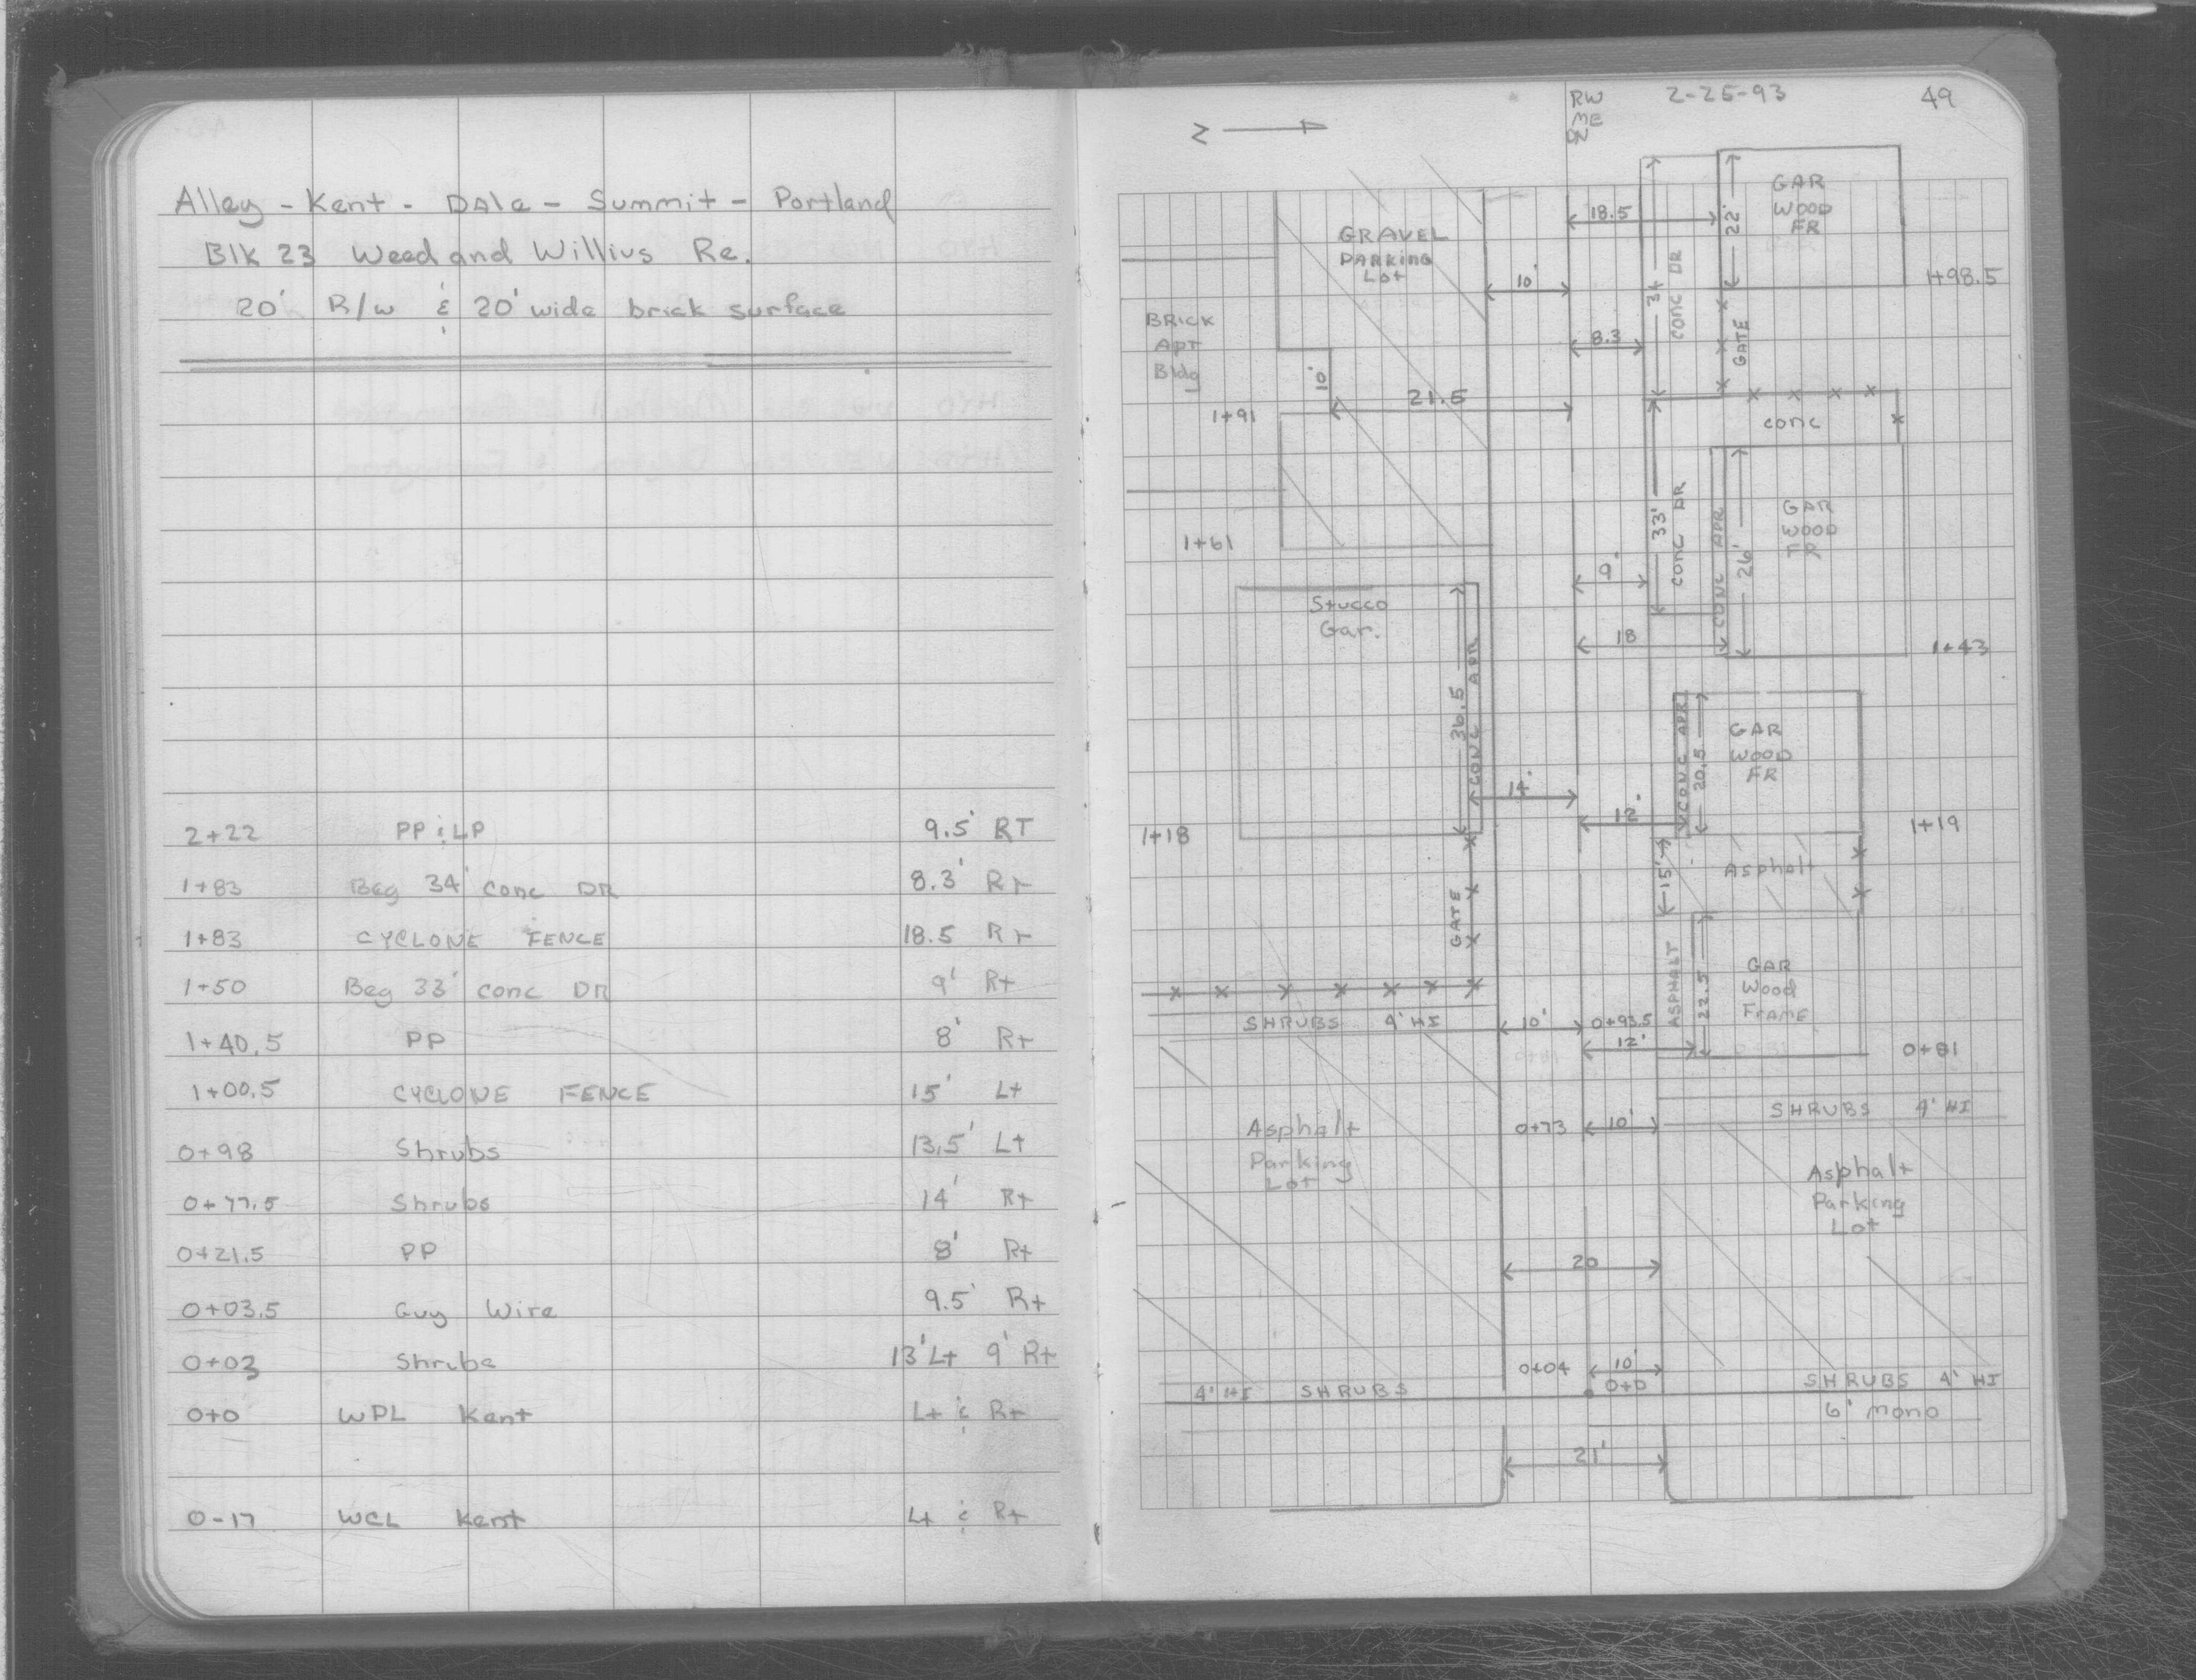 Alley - Kent - Dale - Summit - Portland
Blk 23 Weed and Willius Re.
20' R/W & 20' wide brick surface
2+22 PP & LP 9.5' RT
1+83 Beg 34' conc DR 8.3' Rt
1+83 CYCLONE FENCE 18.5 Rt
1+50 Beg 33' conc DR 9' Rt
1+40.5 PP 8' Rt
1+00.5 CYCLONE FENCE 15' Lt
0+98 Shrubs 13.5' Lt
0+77.5 Shrubs 14' Rt
0+21.5 PP 8' Rt
0+03.5 Guy Wire 9.5' Rt
0+03 Shrubs 13' Lt 9' Rt
0+0 WPL Kent Lt & Rt
0-17 WCL Kent Lt & Rt
RW 2-25-93 49
ME
DN
N
GAR
WOOD
FR
18.5
22'
GRAVEL
PARKING
Lot
34
CONC DR
10'
1+98.5
BRICK
Apt
Bldg
8.3
GATE
10'
21.5
1+91
conc
GAR
WOOD
FR
33'
CONC DR
CONC APR
26'
1+61
9'
Stucco
Gar.
18
1+43
36.5
CONC APR
CONC APR
20.5
GAR
WOOD
FR
14'
12'
1+18
1+19
15'
Asphalt
GATE
ASPHALT
22.5
GAR
Wood
FrAME
SHRUBS 4' HI
10'
0+93.5
12'
0+81
SHRUBS 4' HI
Asphalt
Parking
Lot
0+73
10'
Asphalt
Parking
Lot
20
0+04
10'
0+0
4' HI SHRUBS
SHRUBS 4' HI
6' mono
21'